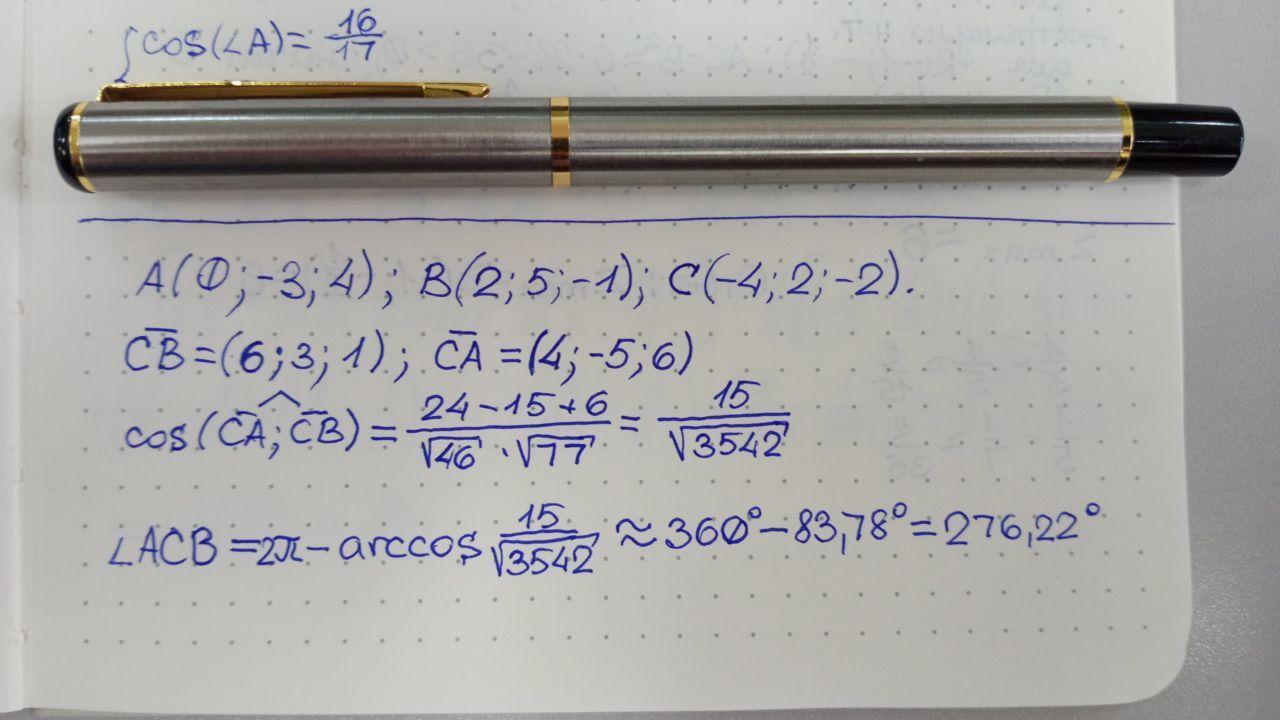 cos(∠A) = 16/17
A(0; -3; 4); B(2; 5; -1); C(-4; 2; -2).
C̅B̅ = (6; 3; 1); C̅A̅ = (4; -5; 6)
cos(C̅A̅; C̅B̅) = (24 - 15 + 6)/(√46 · √77) = 15/√3542
∠ACB = 2π - arccos 15/√3542 ≈ 360° - 83,78° = 276,22°